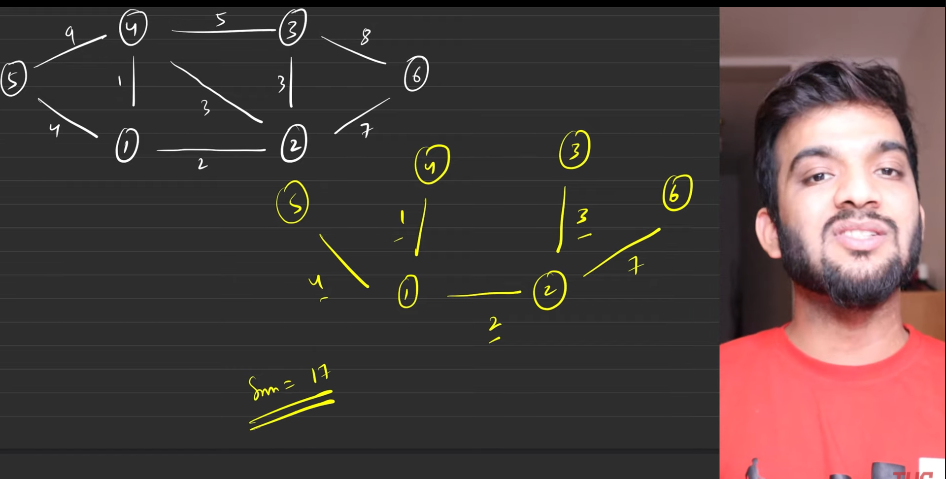 9 4 5 3 8
5 1 3 3 6
4 1 2 2 7
5 4 3 6
1 3
4 1 2 7
2
Sum = 17